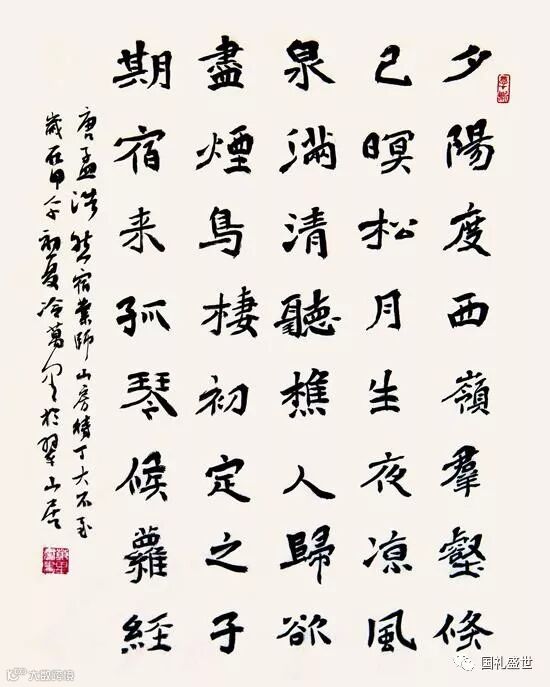 夕陽度西嶺羣壑倏
已暝松月生夜凉風
泉滿清聽樵人歸欲
盡煙鳥棲初定之子
期宿来孤琴候蘿経
唐孟浩然宿業師山房待丁大不至
歲在甲午初夏冷萬於翠山居
大数跨境
国礼盛世